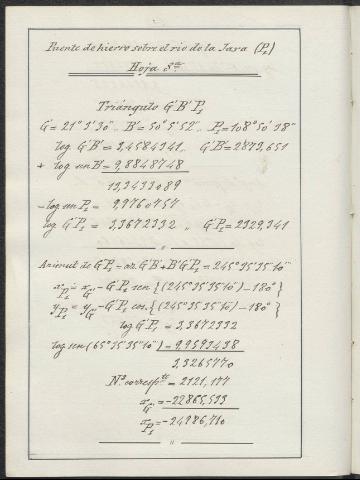 Puente de hierro sobre el rio de la Jara (P₂)
Hoja 3ª
Triángulo G'B'P₂
G'= 21° 3' 30" ,, B'= 50° 5' 52" ,, P₂= 108° 50' 38"
log G'B' = 3,4584341 ,, G'B' = 2873,651
+ log sen B' = 9,8848748
13,3433089
- log sen P₂ = 9,9760757
log G'P₂ = 3,3672332 ,, G'P₂ = 2329,341
"
Azimut de G'P₂ = az G'B' + B'G'P₂ = 245° 35' 35" 10'''
x P₂ = x G' - G'P₂ sen {(245° 35' 35" 10''') - 180°}
y P₂ = y G' - G'P₂ cos. {(245° 35' 35" 10''') - 180°}
log G'P₂ = 3,3672332
log sen (65° 35' 35" 10''') = 9,9593438
3,3265770
Nº corresp.te = 2121,177
x G' = -22865,533
x P₂ = -24986,710
"